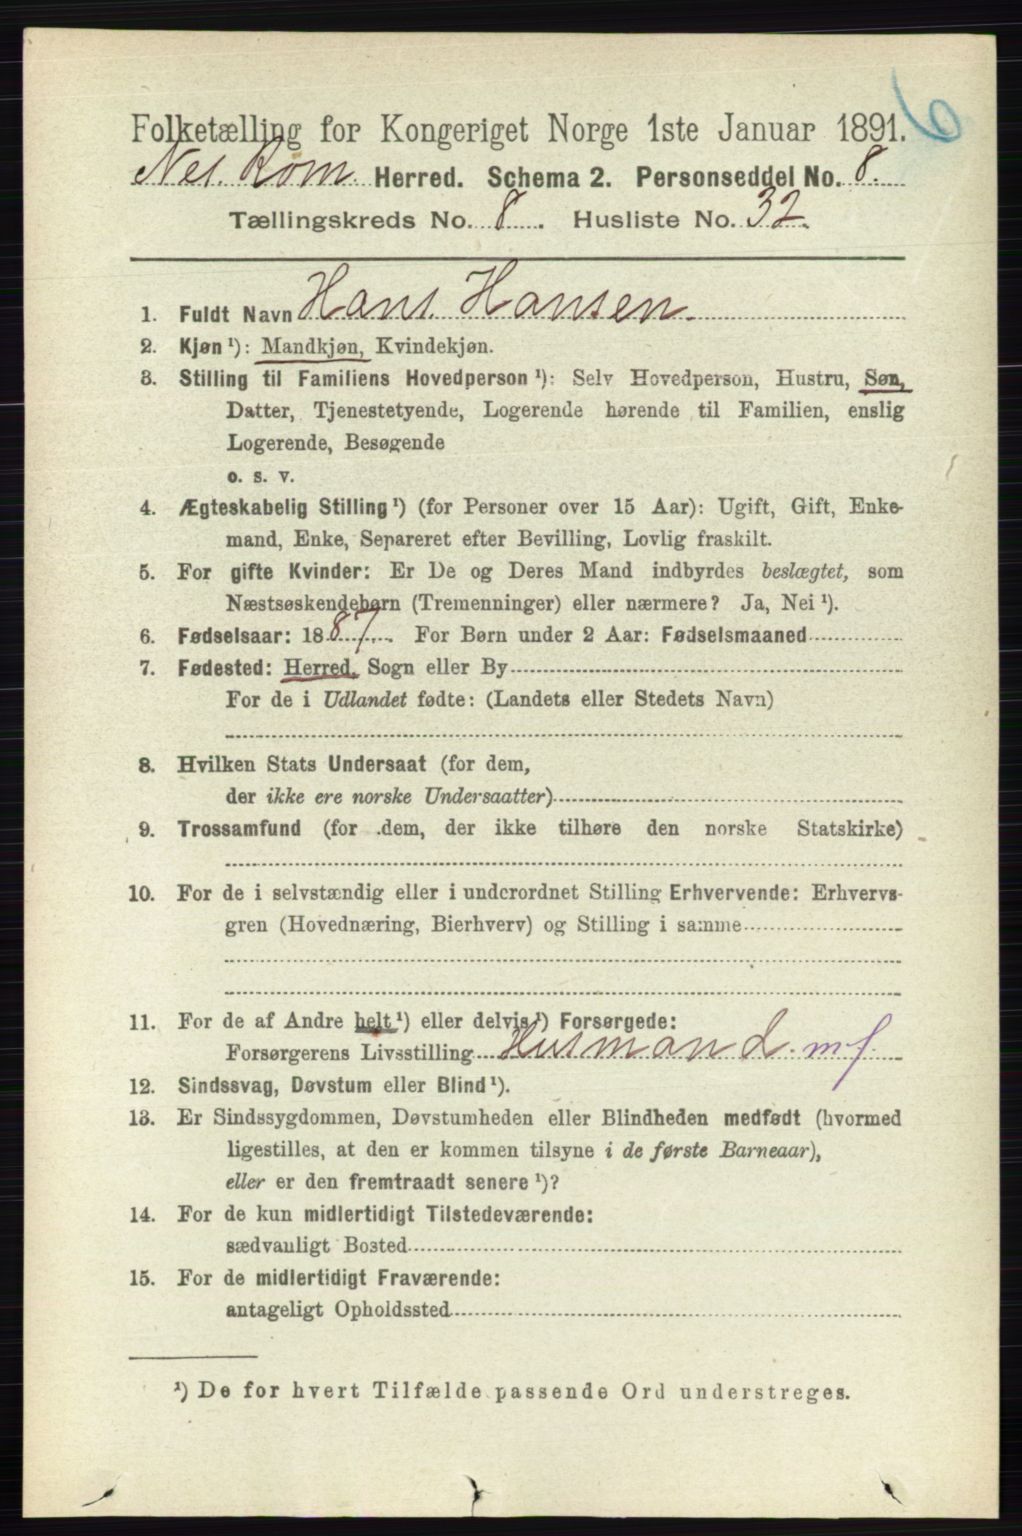 6
Folketælling for Kongeriget Norge 1ste Januar 1891.
Nes. Rom Herred. Schema 2. Personseddel No. 8.
Tællingskreds No. 8. Husliste No. 32.
1. Fuldt Navn Hans. Hansen.
2. Kjøn ¹): Mandkjøn, Kvindekjøn.
3. Stilling til Familiens Hovedperson ¹): Selv Hovedperson, Hustru, Søn,
Datter, Tjenestetyende, Logerende hørende til Familien, enslig
Logerende, Besøgende
o. s. v.
4. Ægteskabelig Stilling ¹) (for Personer over 15 Aar): Ugift, Gift, Enke-
mand, Enke, Separeret efter Bevilling, Lovlig fraskilt.
5. For gifte Kvinder: Er De og Deres Mand indbyrdes beslægtet, som
Næstsøskendebørn (Tremenninger) eller nærmere? Ja, Nei ¹).
6. Fødselsaar: 1887. For Børn under 2 Aar: Fødselsmaaned
7. Fødested: Herred, Sogn eller By
For de i Udlandet fødte: (Landets eller Stedets Navn)
8. Hvilken Stats Undersaat (for dem,
der ikke ere norske Undersaatter)
9. Trossamfund (for dem, der ikke tilhøre den norske Statskirke)
10. For de i selvstændig eller i underordnet Stilling Erhvervende: Erhvervs-
gren (Hovednæring, Bierhverv) og Stilling i samme
11. For de af Andre helt ¹) eller delvis ¹) Forsørgede:
Forsørgerens Livsstilling Husmand. m f.
12. Sindssvag, Døvstum eller Blind ¹).
13. Er Sindssygdommen, Døvstumheden eller Blindheden medfødt (hvormed
ligestilles, at den er kommen tilsyne i de første Barneaar),
eller er den fremtraadt senere ¹)?
14. For de kun midlertidigt Tilstedeværende:
sædvanligt Bosted
15. For de midlertidigt Fraværende:
antageligt Opholdssted
¹) De for hvert Tilfælde passende Ord understreges.